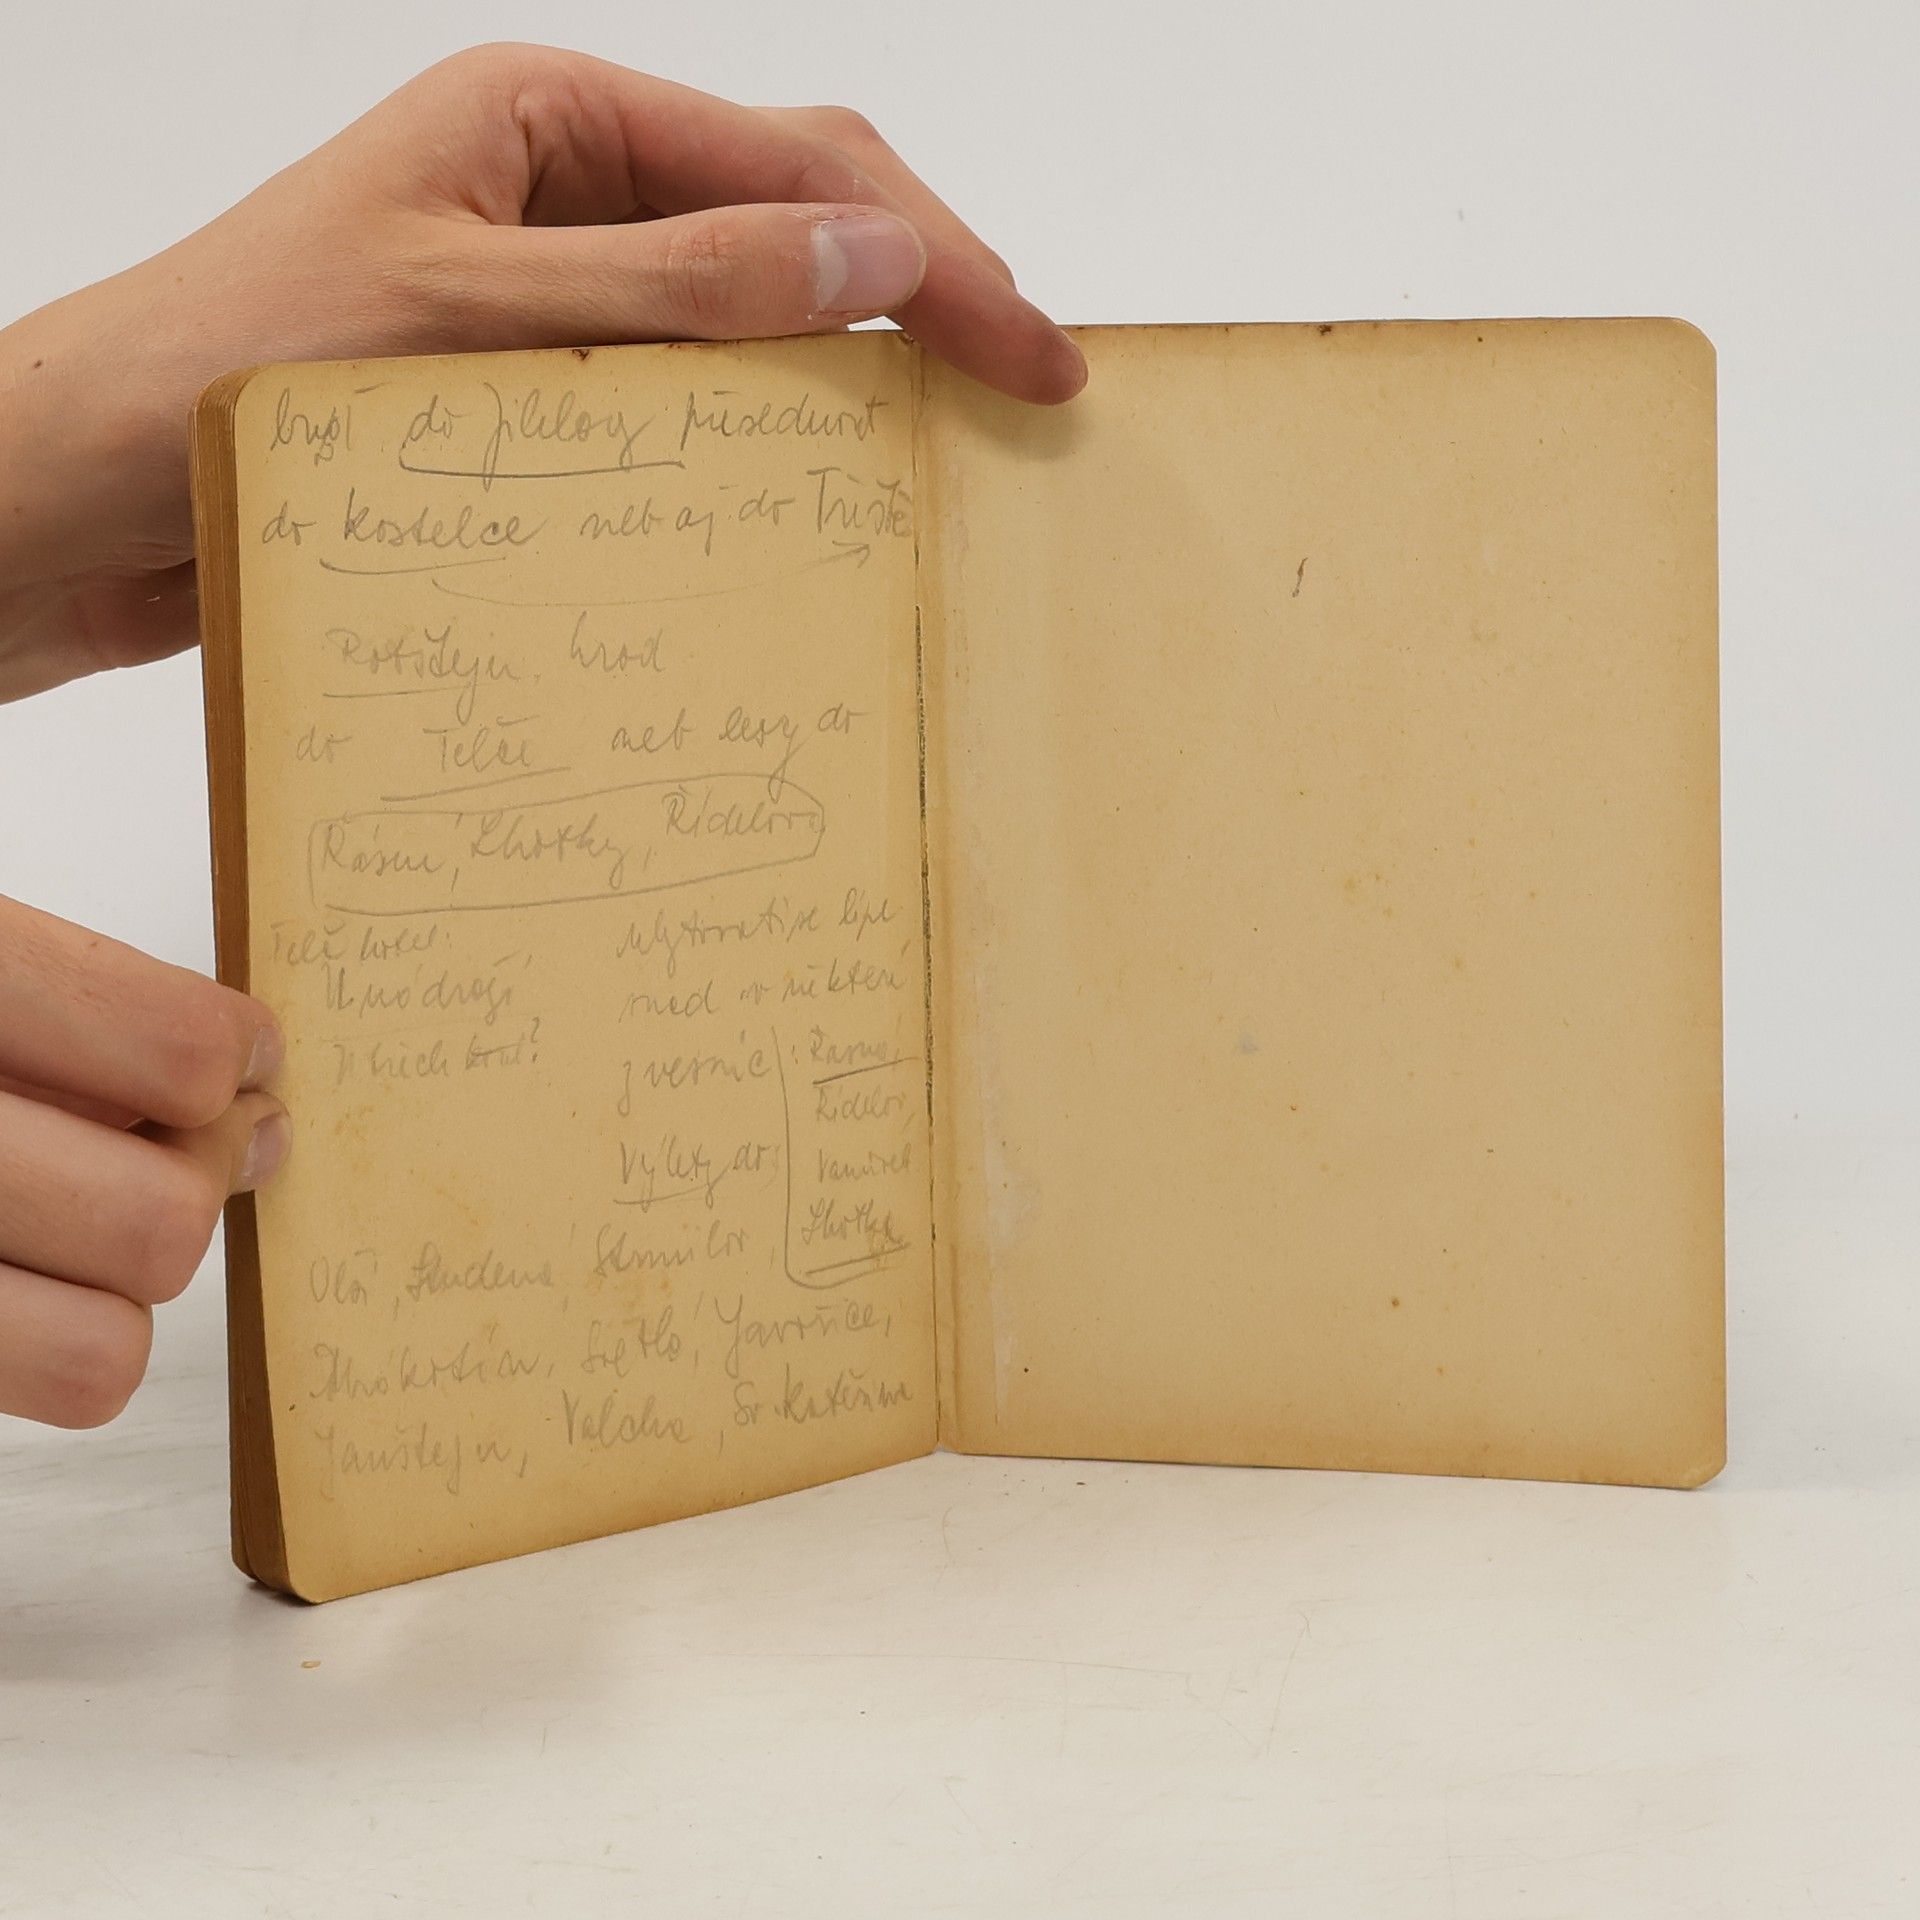 do Jihlavy přesednout
do Kostelce neb aj do Třeště
Roštejn hrad
do Telče neb lesy do
Řásné, Lhotky, Řídelova
Telč hotel:
U nádraží
ubytovati se lépe
snad v některé
z vesnic
Řásná,
Řídelov,
Vanůvek
Lhotka
Výlety do:
Olší, Studená, Strmilov,
Mrákotín, Světlá, Javořice,
Janštejn, Valcha, Sv. Kateřina